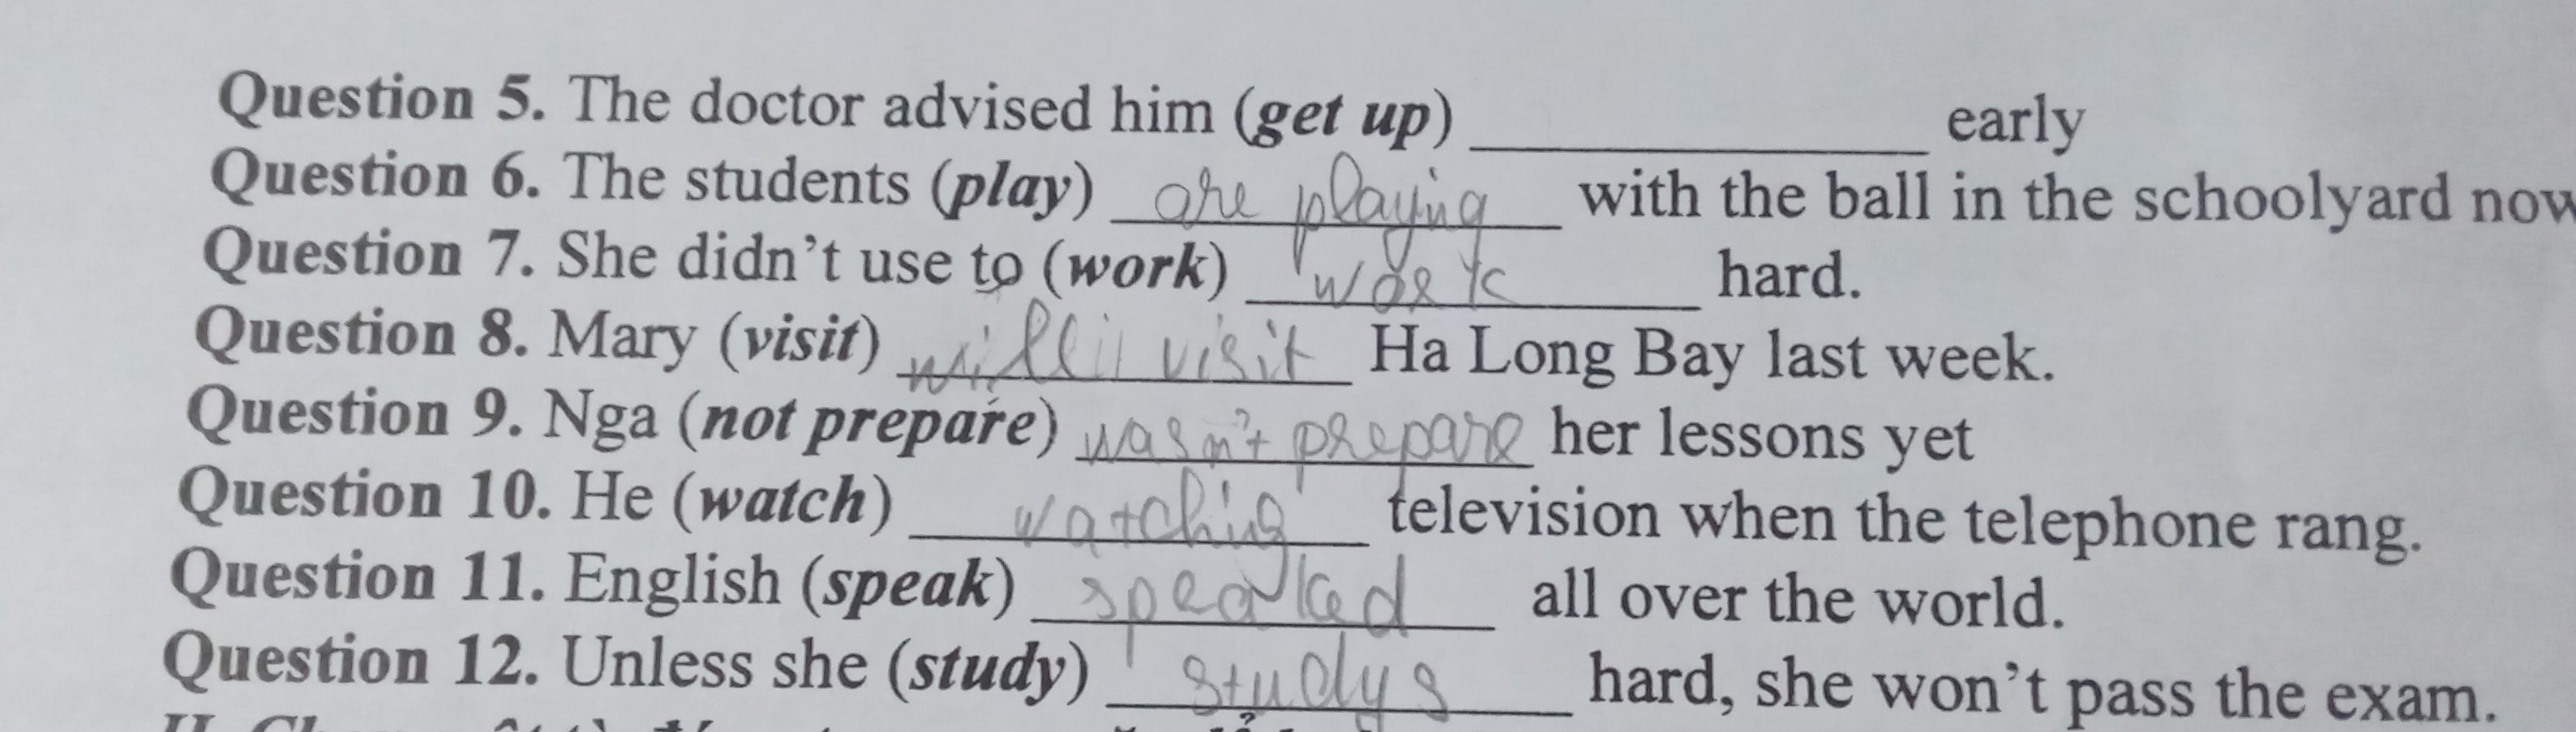 Question 5. The doctor advised him (get up) ____________ early
Question 6. The students (play) are playing with the ball in the schoolyard now
Question 7. She didn't use to (work) work hard.
Question 8. Mary (visit) will visit Ha Long Bay last week.
Question 9. Nga (not prepare) wasn't prepare her lessons yet
Question 10. He (watch) watching television when the telephone rang.
Question 11. English (speak) speaked all over the world.
Question 12. Unless she (study) studys hard, she won't pass the exam.